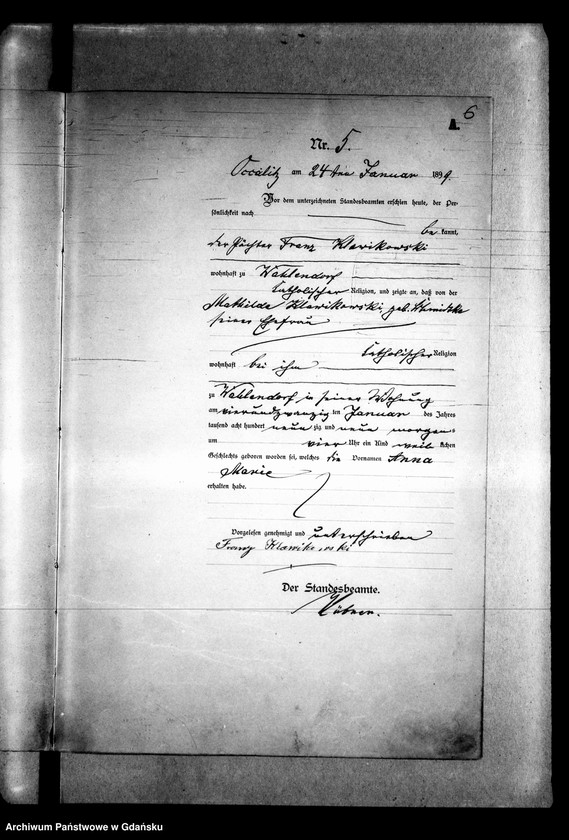 6
A.
Nr. 5.
Occalitz am 24ten Januar 1899.
Vor dem unterzeichneten Standesbeamten erschien heute, der Per-
sönlichkeit nach
be kannt,
der Pächter Franz Klawikowski
wohnhaft zu Wahlendorf
katholischer Religion, und zeigte an, daß von der
Mathilde Klawikowski, geb.
seiner Ehefrau
katholischer Religion
wohnhaft bei ihm
zu Wahlendorf in seiner Wohnung
am vierundzwanzig ten Januar des Jahres
tausend acht hundert neun zig und neun morgens
um vier Uhr ein Kind weib lichen
Geschlechts geboren worden sei, welches die Vornamen Anna
Marie
erhalten habe.
Vorgelesen genehmigt und unterschrieben
Franz Klawikowski
Der Standesbeamte.
Archiwum Państwowe w Gdańsku